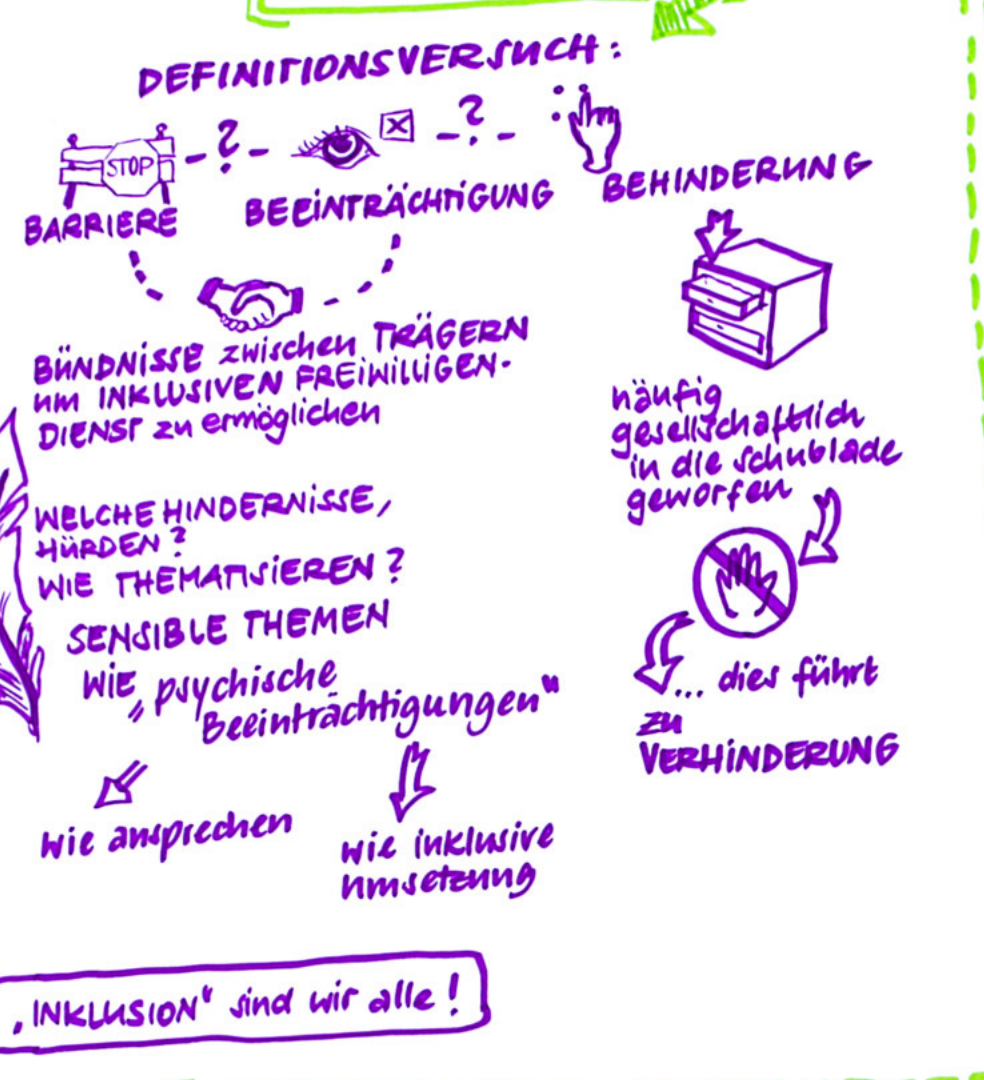 DEFINITIONSVERSUCH:
STOP
-?-
-?-
BARRIERE
BEEINTRÄCHTIGUNG
BEHINDERUNG
BÜNDNISSE zwischen TRÄGERN
um INKLUSIVEN FREIWILLIGEN-
DIENST zu ermöglichen
WELCHE HINDERNISSE,
HÜRDEN?
WIE THEMATISIEREN?
SENSIBLE THEMEN
WIE „psychische
Beeinträchtigungen"
wie ansprechen
wie inklusive
umsetzung
häufig
gesellschaftlich
in die schublade
geworfen
... dies führt
zu
VERHINDERUNG
„INKLUSION" sind wir alle!